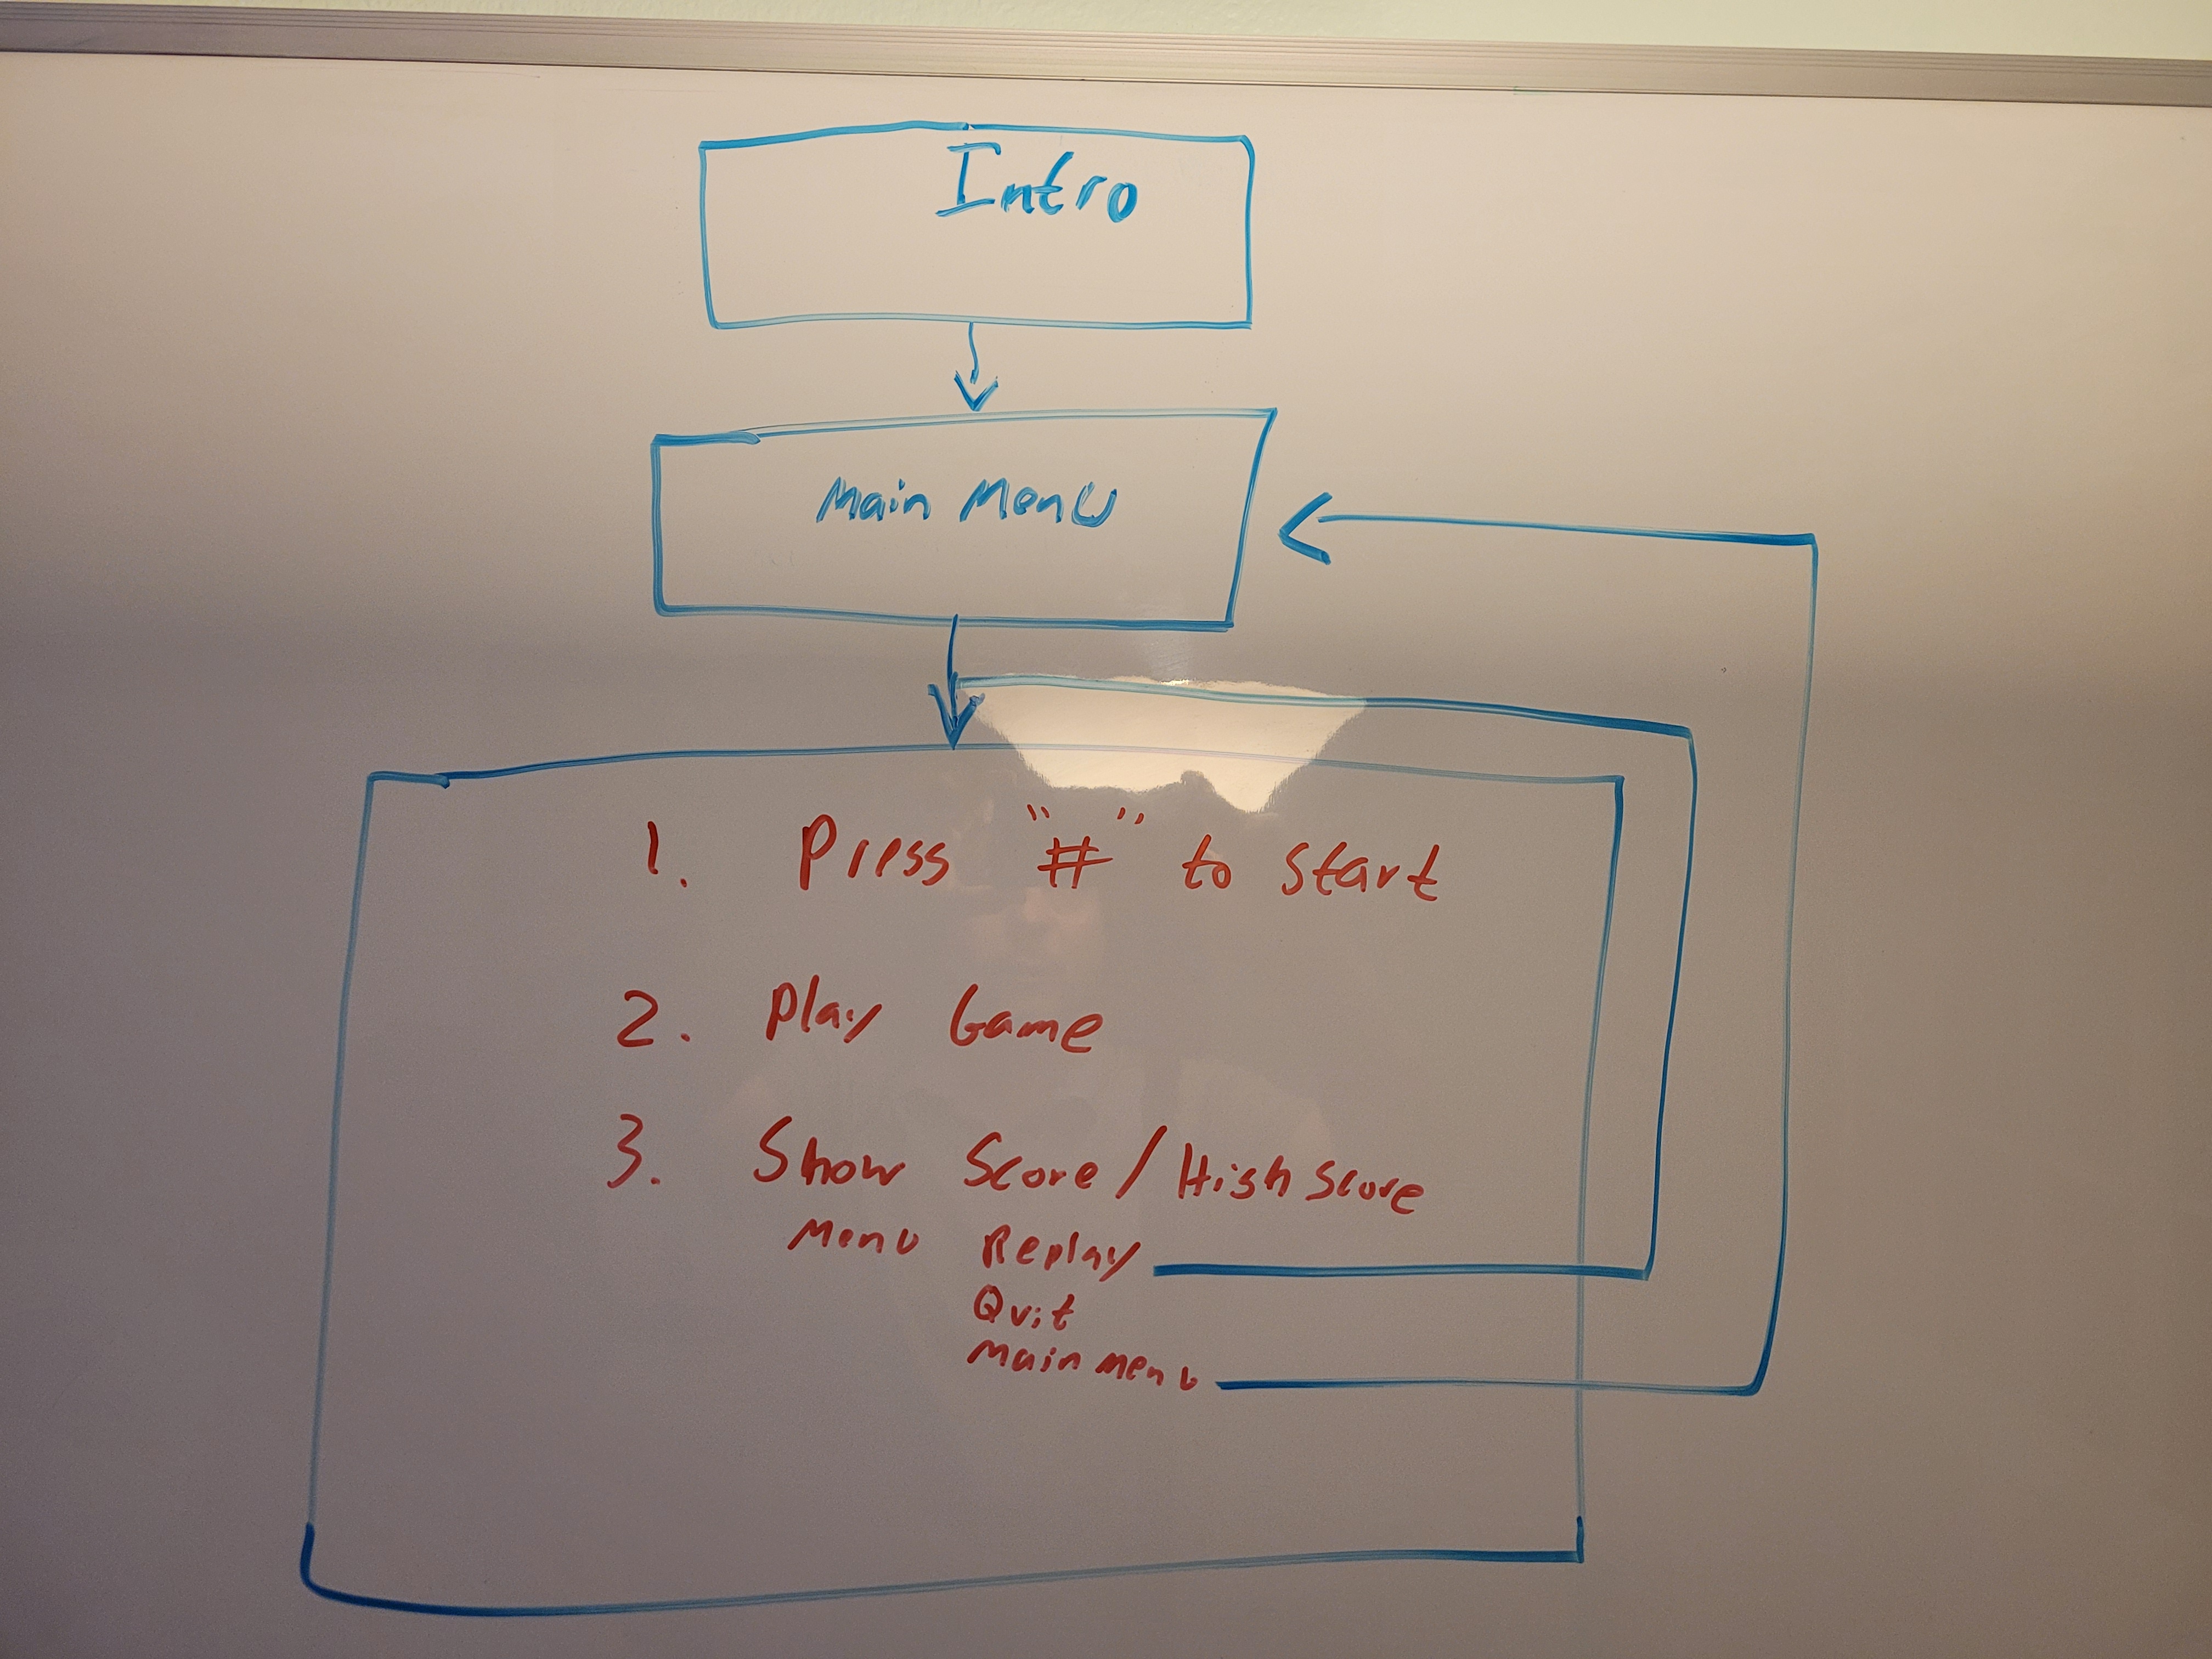 Intro
Main Menu
1. Press "#" to start
2. Play Game
3. Show Score/High Score
Menu Replay
Quit
Main Menu